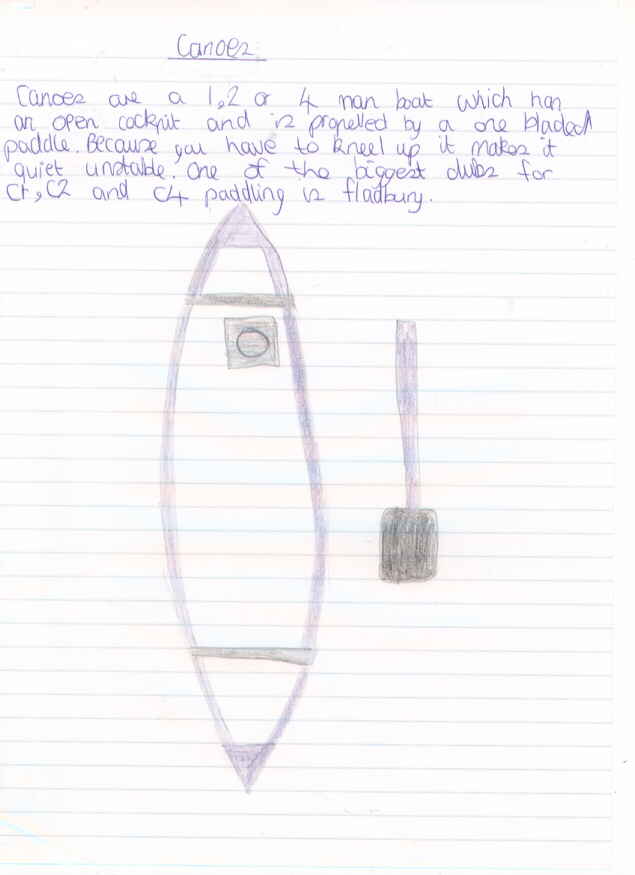 Canoes
Canoes are a 1,2 or 4 man boat which has
an open cockpit and is propelled by a one bladed
paddle. Because you have to kneel up it makes it
quiet unstable. One of the biggest clubs for
C1, C2 and C4 paddling is fladbury.